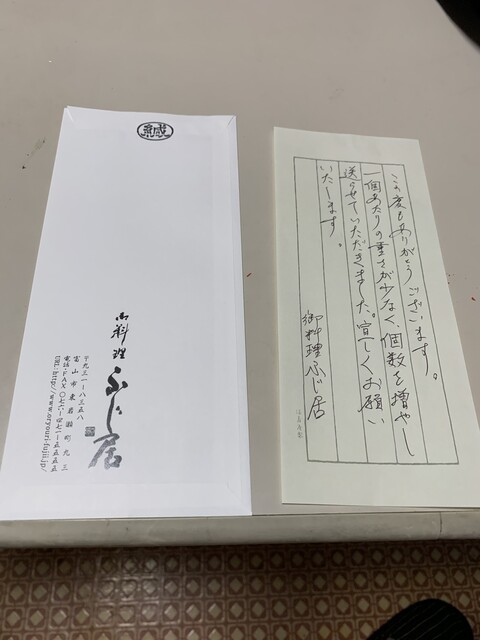 この度もありがとうございます。
一個あたりの重さが少なく、個数を増やし
送らせていただきました。宜しくお願い
いたします。
御料理ふじ居
御料理
ふじ居
〒九三一-八三五八
富山市東岩瀬町九三
電話・FAX 〇七六-四七一-五五五五
URL: http://www.oryouri-fujii.jp/